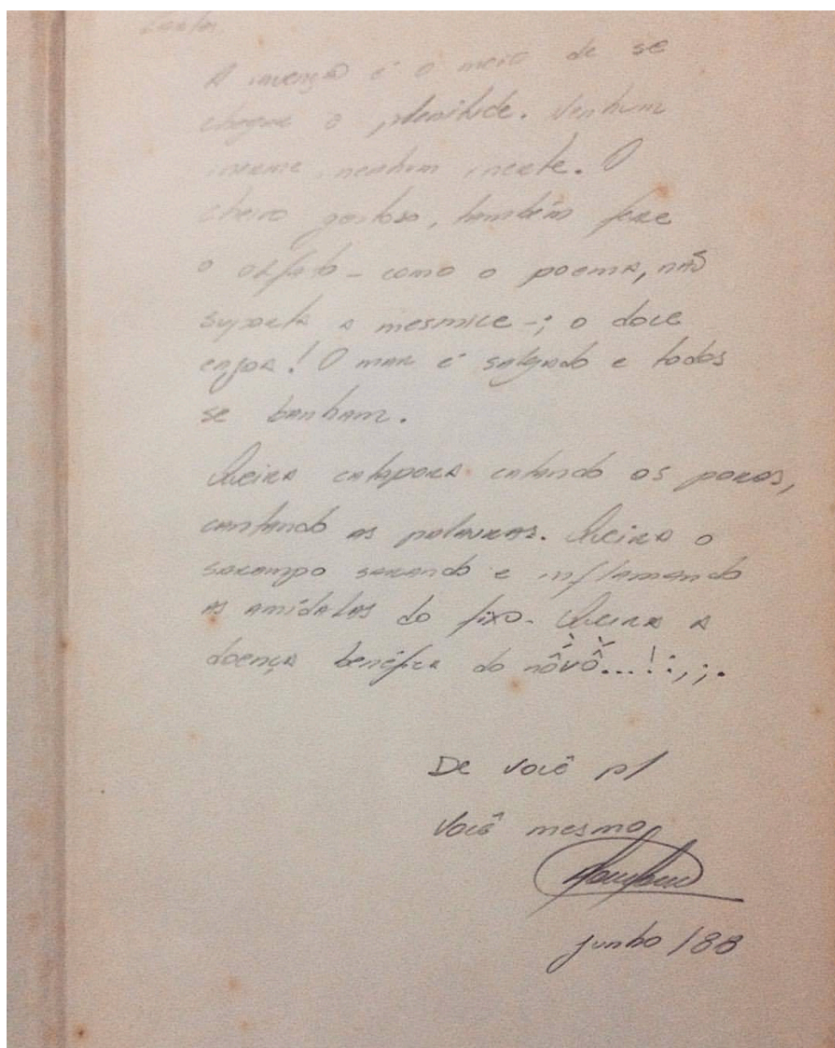 A invenção é o meio de se
chegar a plenitude. Nenhum
inerme, nenhum inerte. O
cheiro gostoso, também fere
o olfato - como o poema, não
suporta a mesmice -; o doce
enjoa! O mar é salgado e todos
se banham.
Queira catapora catando os poros,
cantando as palavras. Queira o
sarampo sarando e inflamando
as amídalas do fixo. Queira a
doença benéfica do nôvô...!:,;.
De você p/
você mesmo
junho /88